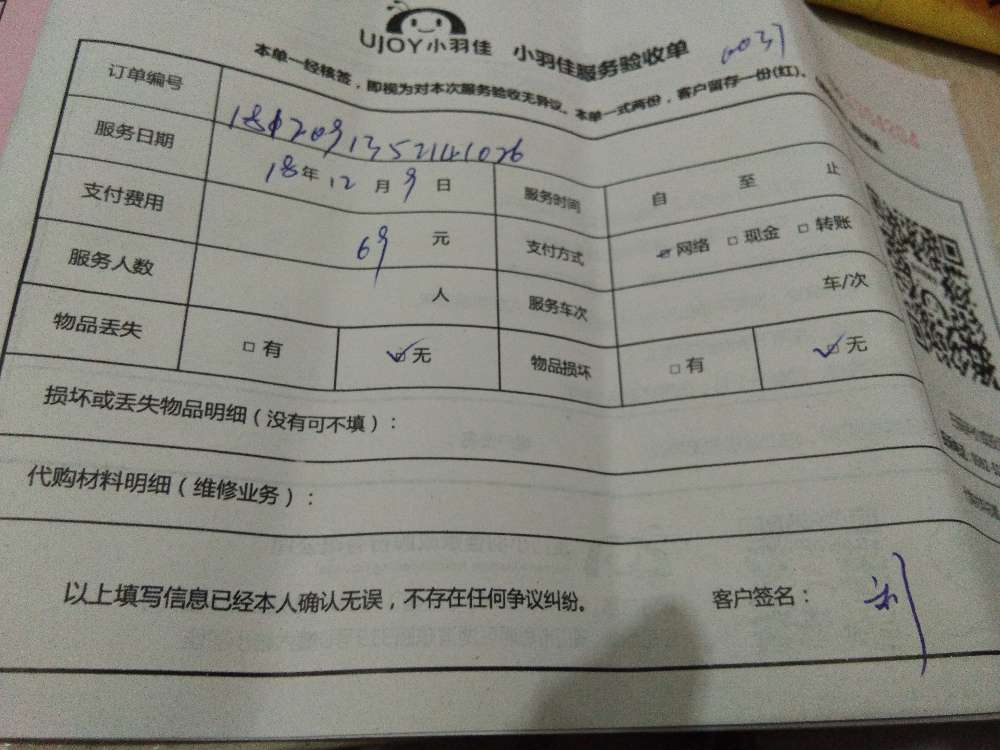 UJOY小羽佳 小羽佳服务验收单
本单一经核签，即视为对本次服务验收无异议。本单一式两份，客户留存一份(红)。
订单编号
服务日期 18年12月9日 服务时间 自 至 止
支付费用 69元 支付方式 网络 现金 转账
服务人数 人 服务车次 车/次
物品丢失 有 无 物品损坏 有 无
损坏或丢失物品明细（没有可不填）：
代购材料明细（维修业务）：
以上填写信息已经本人确认无误，不存在任何争议纠纷。 客户签名：